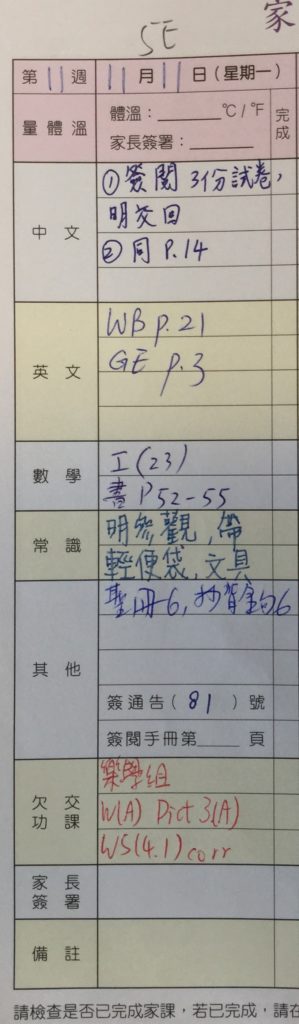 家
5E
第11週 11月11日(星期一)
量體溫 體溫:______°C/°F 完成
家長簽署:______
中文 ①簽閱 3份試卷,
明交回
②同 P.14
英文 WB p.21
GE p.3
數學 工(23)
書 P52-55
常識 明參觀,帶
輕便袋,文具
其他 聖冊6,抄背金句6
簽通告(81)號
簽閱手冊第____頁
欠交功課
W(A) Dict 3(A)
WS(4.1) corr
家長簽署
備註
請檢查是否已完成家課,若已完成,請在